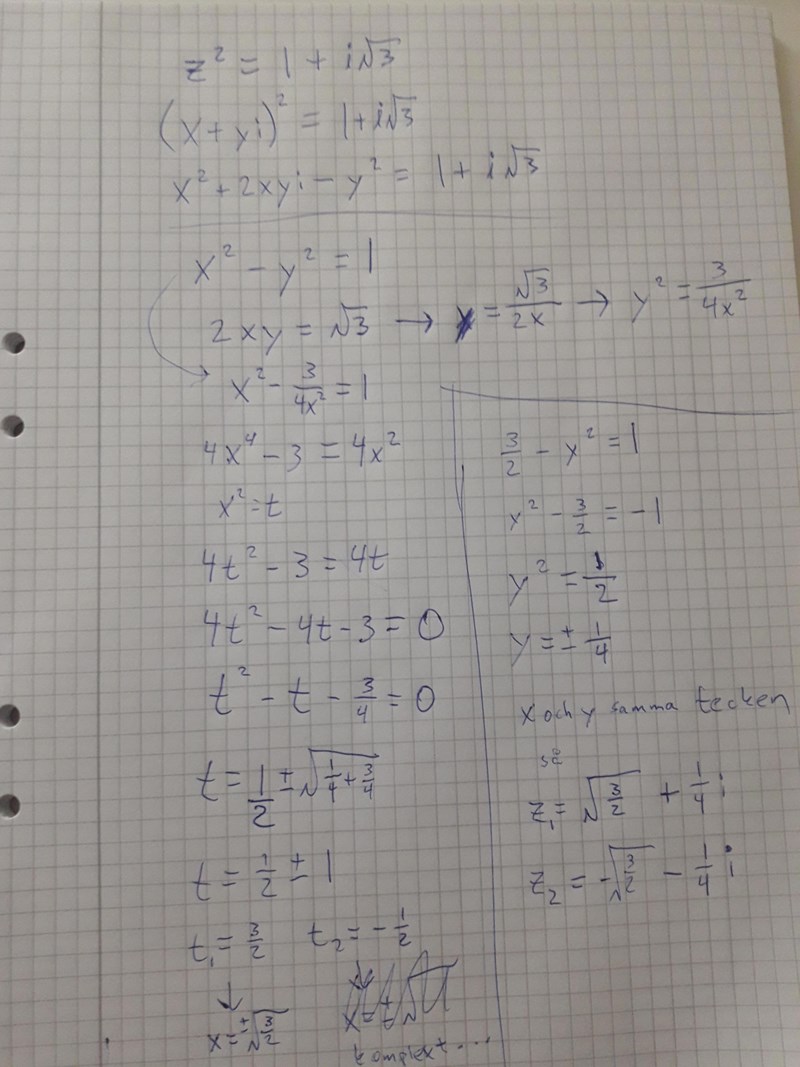 z² = 1 + i√3
(x + yi)² = 1 + i√3
x² + 2xyi − y² = 1 + i√3
x² − y² = 1
2xy = √3 → y = √3/2x → y² = 3/4x²
x² − 3/4x² = 1
4x⁴ − 3 = 4x²
x² = t
4t² − 3 = 4t
4t² − 4t − 3 = 0
t² − t − 3/4 = 0
t = 1/2 ± √(1/4 + 3/4)
t = 1/2 ± 1
t₁ = 3/2 t₂ = −1/2
↓ ↓
x = ±√(3/2) x = ±√
komplext...
3/2 − y² = 1
y² − 3/2 = −1
y² = 1/2
y = ± 1/4
x och y samma tecken
så
z₁ = √(3/2) + 1/4 i
z₂ = −√(3/2) − 1/4 i